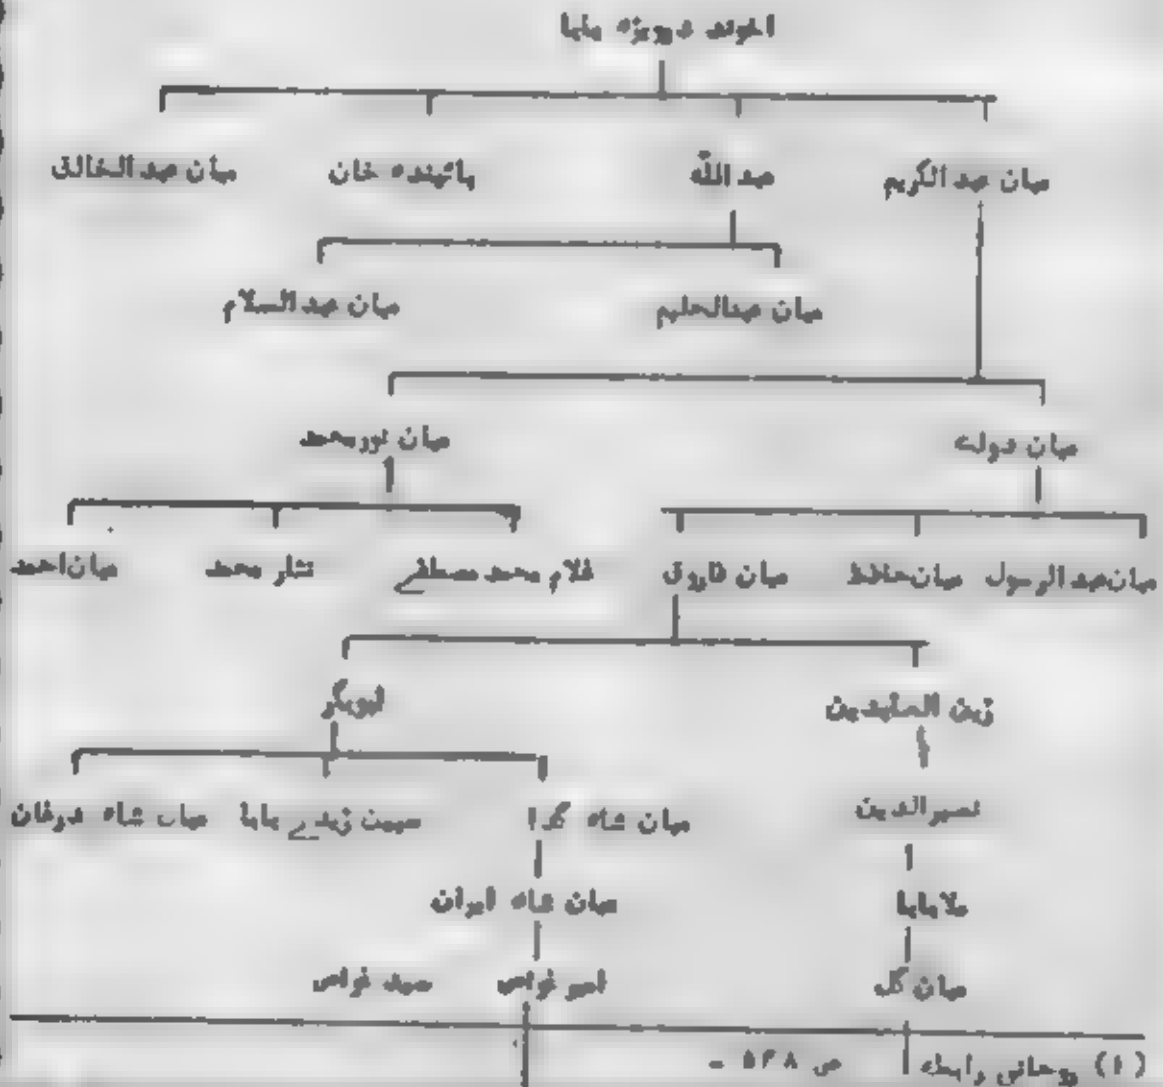 اخوند درویزه بابا
میان عبدالکریم عبداللہ پائینده خان میان عبدالخالق
میان عبدالحلیم میان عبدالسلام
میان دولت میان نورمحمد
میان عبدالرسول میان حافظ میان فاروق غلام محمد مصطفے نثار محمد میان احمد
زین العابدین ابوبکر
نصیرالدین میان شاه گدا زیدے بابا میاں شاه درغان
ملابابا میان شاه ایران
میان گل امیر غواص سید غواص
(۱) روحانی رابطہ ص ۵۴۸ -